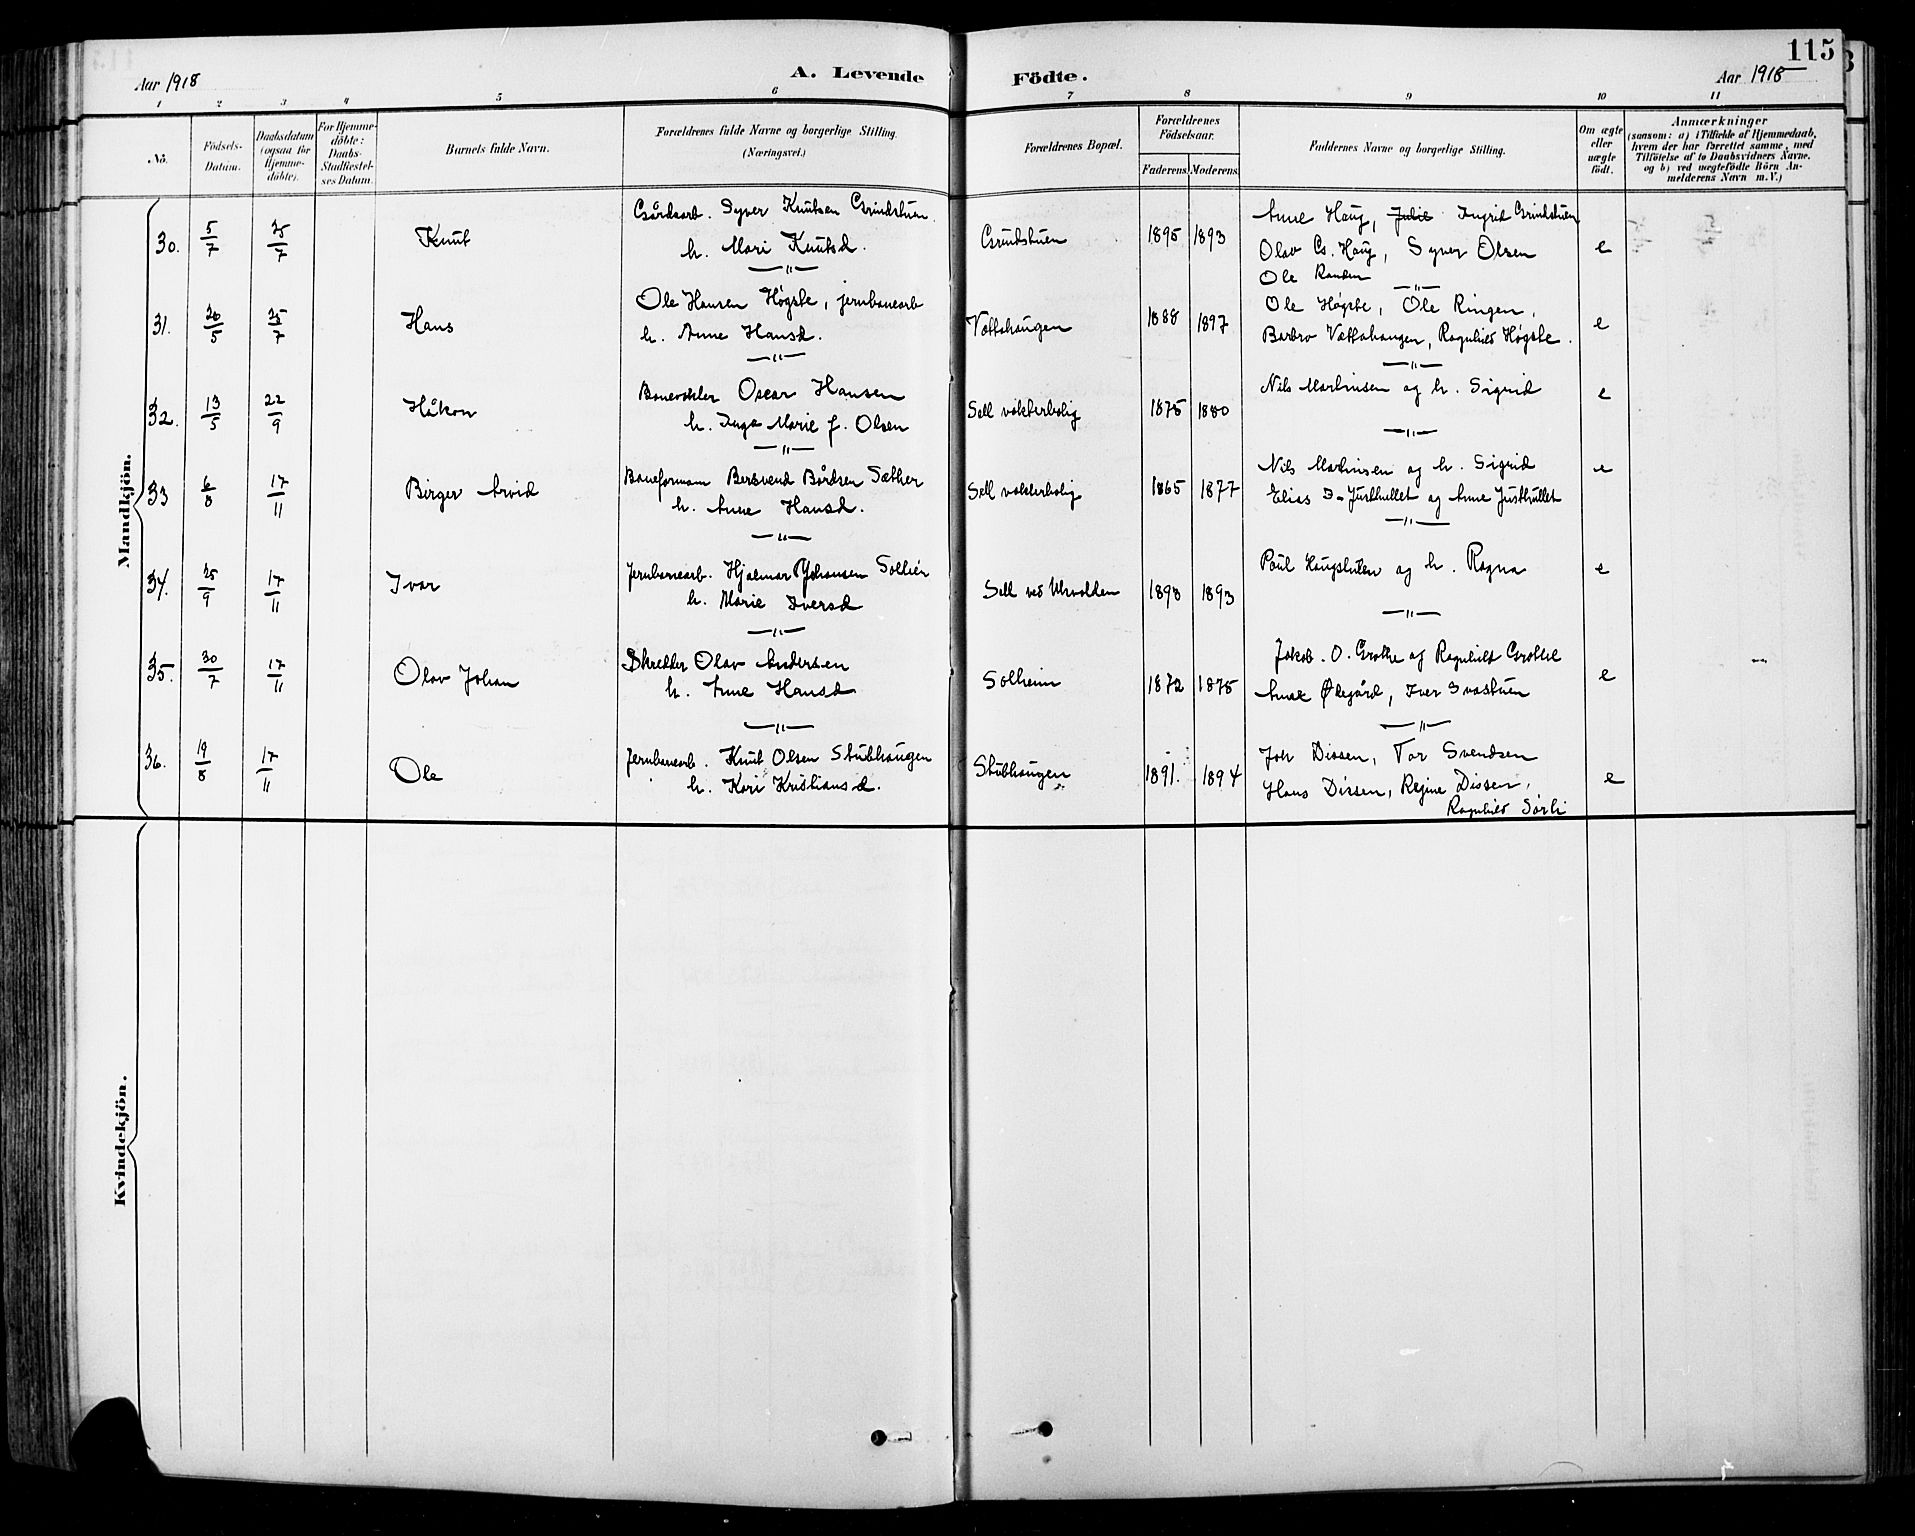 115
Aar 1918
A. Levende
Födte.
Aar 1918
1 2 3 4 5 6 7 8 9 10 11
Nö.
Födsels-Datum.
Daabsdatum (ogsaa for Hjemme-döbte).
For Hjemme-döbte: Daabs-Stadfæstel-ses Datum.
Barnets fulde Navn.
Forældrenes fulde Navne og borgerlige Stilling. (Næringsvei.)
Forældrenes Bopæl.
Forældrenes Födselsaar.
Faderens. Moderens.
Faddernes Navne og borgerlige Stilling.
Om ægte eller uægte födt.
Anmærkninger
(saasom: a) i Tilfælde af Hjemmedaab, hvem der har forrettet samme, med Tilföielse af to Daabsvidners Navne, og b) ved uægtefödte Börn An-melderens Navn m.V.)
Mandkjön.
30. 5/7 25/7 Knut
Gårdarb. Syver Knutsen Grindstuen
h. Mari Knutsd.
Grindstuen 1895 1893
Anne Haug, Julie Ingrid Grindstuen
Olav G. Haug, Syver Olsen
Ole Randen
e
31. 20/5 25/7 Hans
Ole Hansen Høgste, jernbanearb
h. Anne Hansd.
Vættahaugen 1888 1897
Ole Høgste, Ole Ringen,
Barbro Vættahaugen, Ragnhild Høgste.
e
32. 13/5 22/9 Håkon
Banevokter Oscar Hansen
h. Inga Marie f. Olsen
Sell vokterbolig 1875 1880
Nils Martinsen og h. Sigrid
e
33 6/8 17/11 Birger Arvid
Baneformann Bersvend Bårdsen Sæther
h. Anne Hansd.
Sell vokterbolig 1865 1877
Nils Martinsen og h. Sigrid
Elias Justhullet og Anne Justhullet
e
34. 25/9 17/11 Ivar
Jernbanearb. Hjalmar Johansen Sollien
h. Marie Iversd
Sell ved Ulvolden 1893 1893
Paul Haugstulen og h. Ragna
e
35. 30/7 17/11 Olav Johan
Skredder Olav Andersen
h. Anne Hansd
Solheim 1872 1875
Jakob. O. Grothe og Ragnhild Grothe
Anne Ødegård, Iver Svastuen
e
36. 19/8 17/11 Ole
Jernbanearb. Knut Olsen Stubhaugen
h. Kari Kristiansd.
Stubhaugen 1891. 1894
Joh Dissen, Tor Svendsen
Hans Dissen, Regine Dissen,
Ragnhild Sørli
e
Kvindekjön.